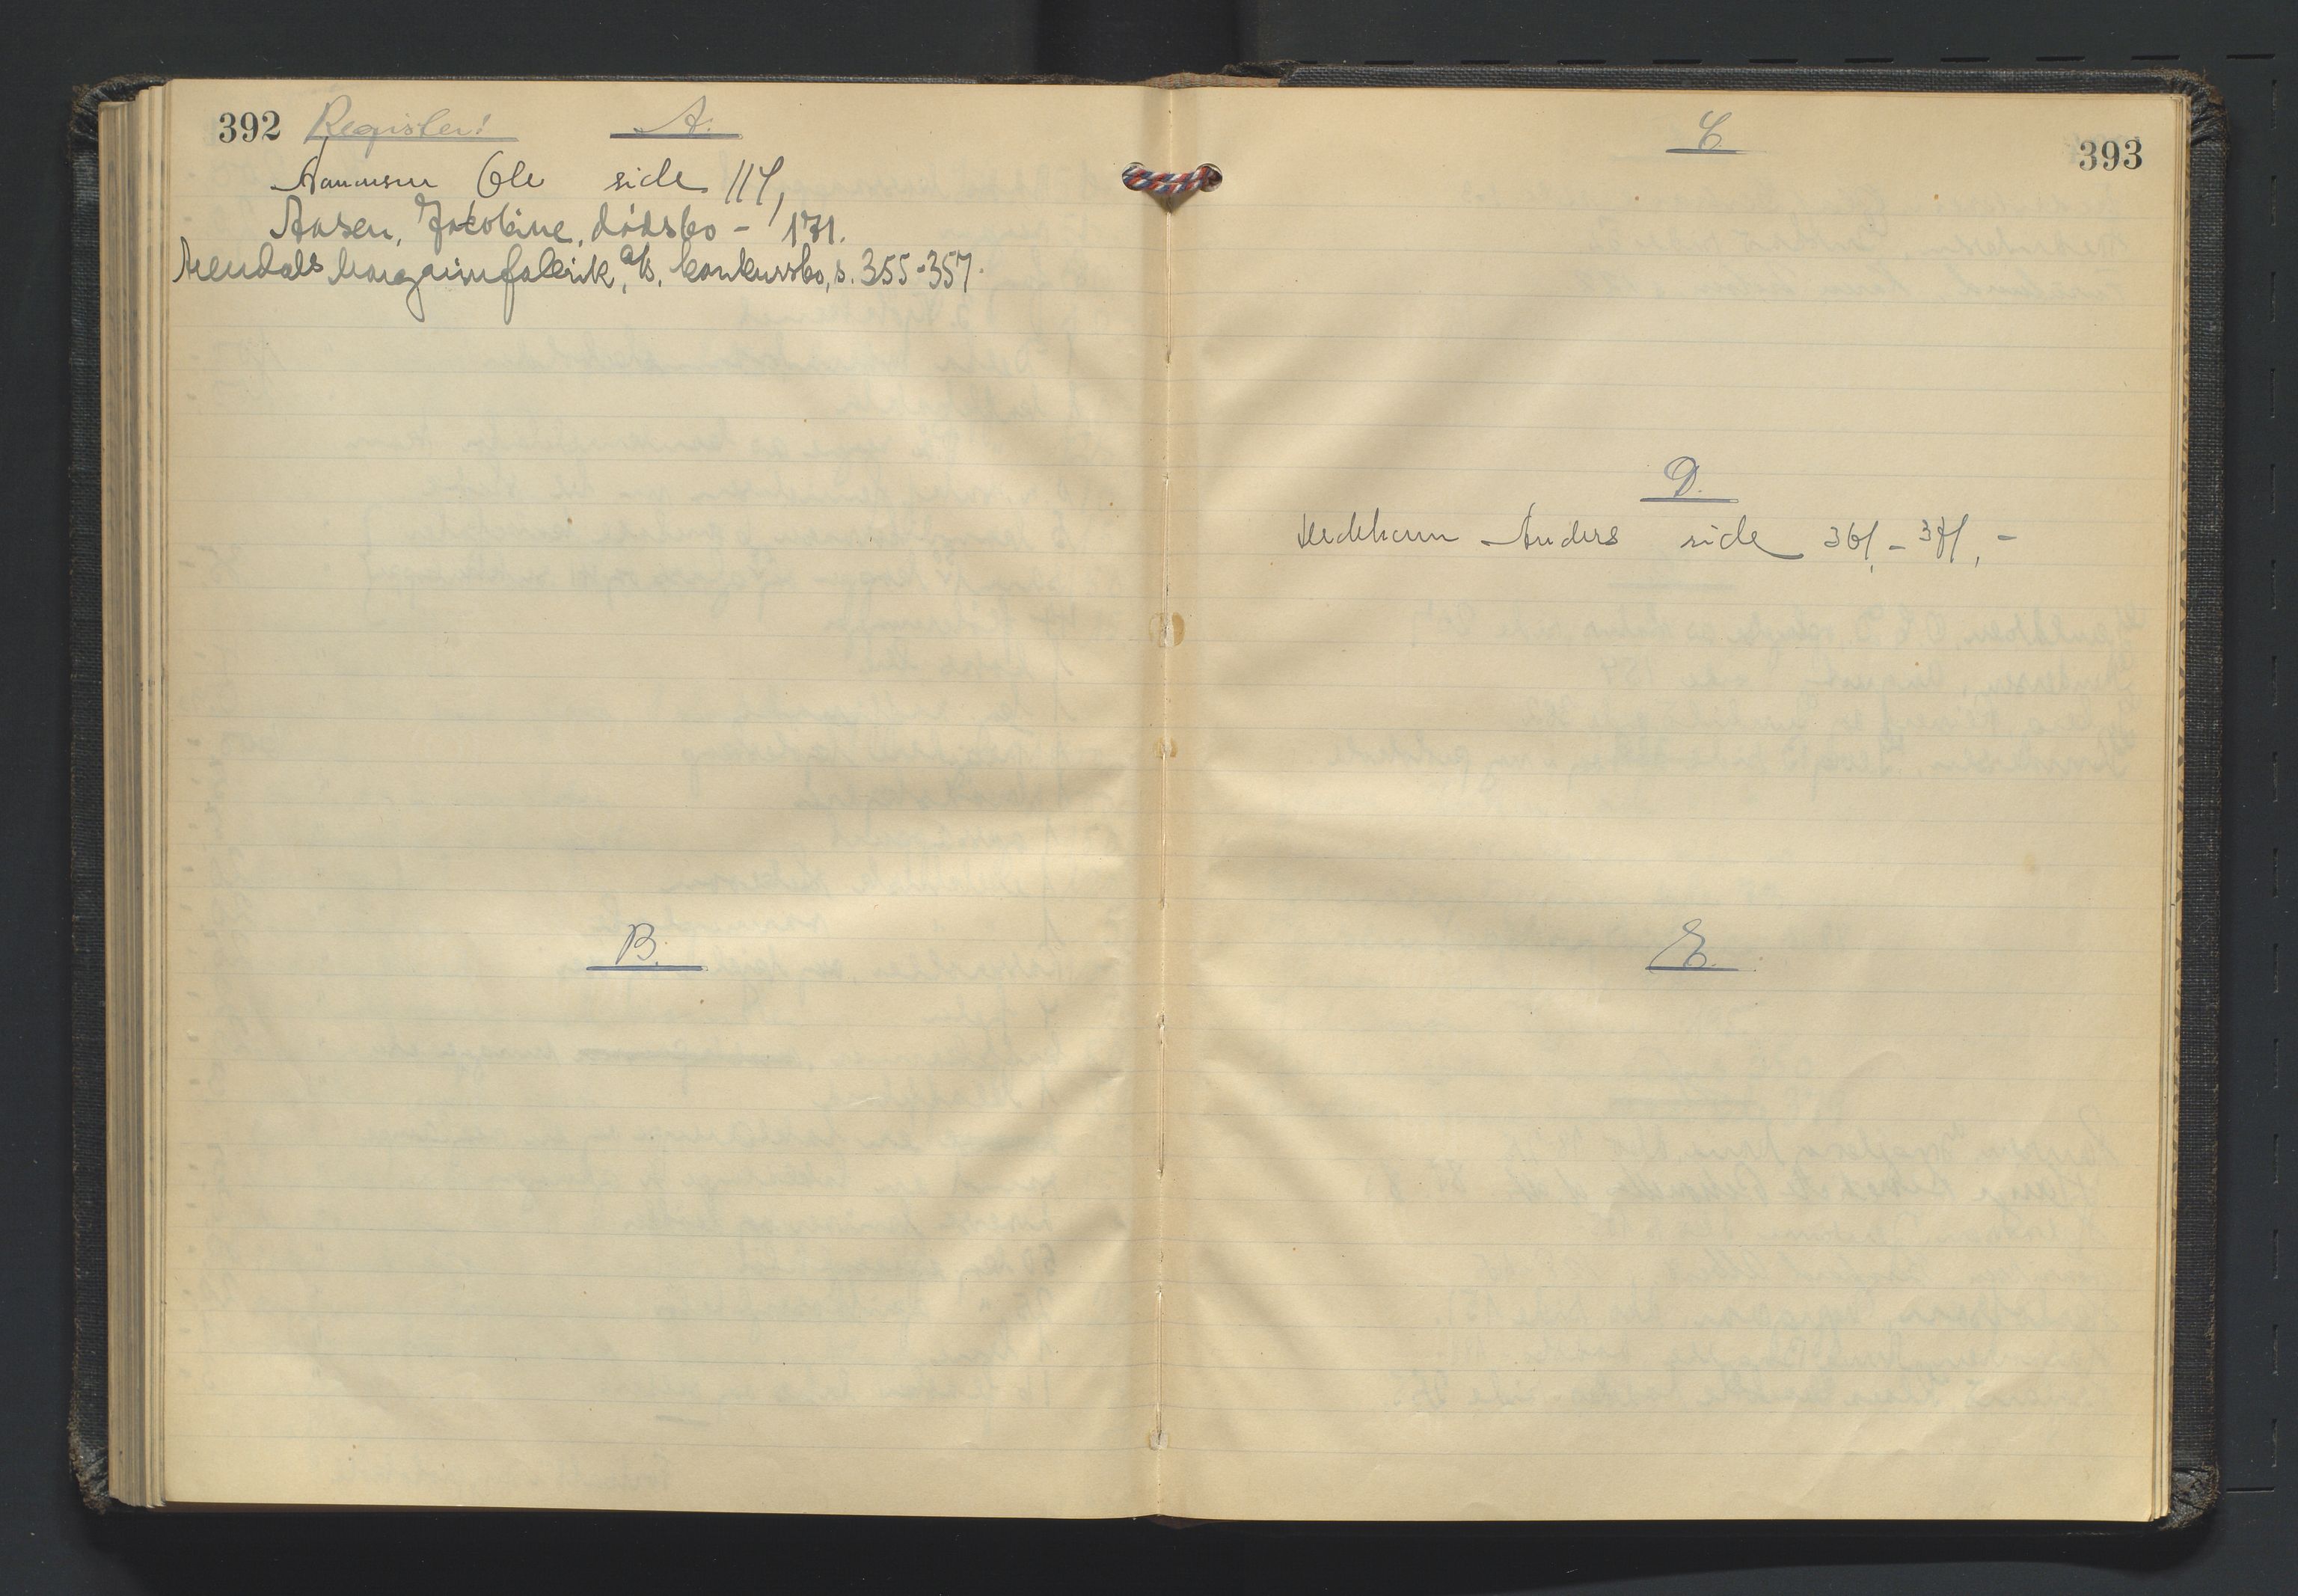 392 Register! A.
Ole side 114,
Aasen, Jakobine, dødsbo - 171.
Arendals Margarinfabrik, A/S, konkursbo, s. 355-357.
B.
C
393
D.
Anders side 361, - 371, -
E.